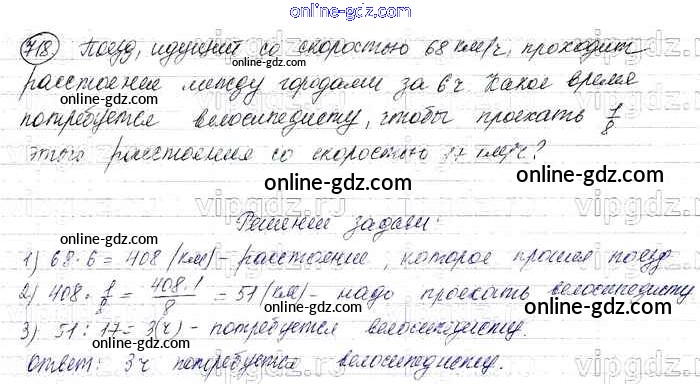 online-gdz.com
718. Поезд, идущий со скоростью 68 км/ч, проходит
расстояние между городами за 6 ч. Какое время
online-gdz.com
потребуется велосипедисту, чтобы проехать 1/8
этого расстояния со скоростью 17 км/ч?
online-gdz.com
online-gdz.com
Решение задачи:
1) 68 · 6 = 408 (км) - расстояние, которое прошел поезд
online-gdz.com
2) 408 · 1/8 = 408·1/8 = 51 (км) - надо проехать велосипедисту
3) 51 : 17 = 3 (ч) - потребуется велосипедисту.
online-gdz.com
Ответ: 3 ч потребуется велосипедисту.